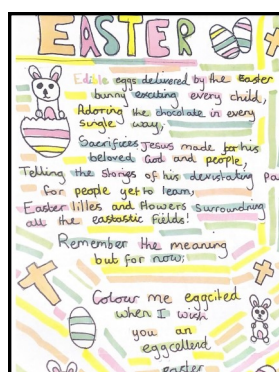 EASTER
Edible eggs delivered by the Easter
bunny exciting every child,
Adoring the chocolate in every
single way,
Sacrifices Jesus made for his
beloved God and people,
Telling the stories of his devastating Pa
For people yet to learn,
Easter lilies and flowers surrounding
all the eastastic fields!
Remember the meaning
but for now,
Colour me eggcited
when I wish
you an
eggcellent
Easter